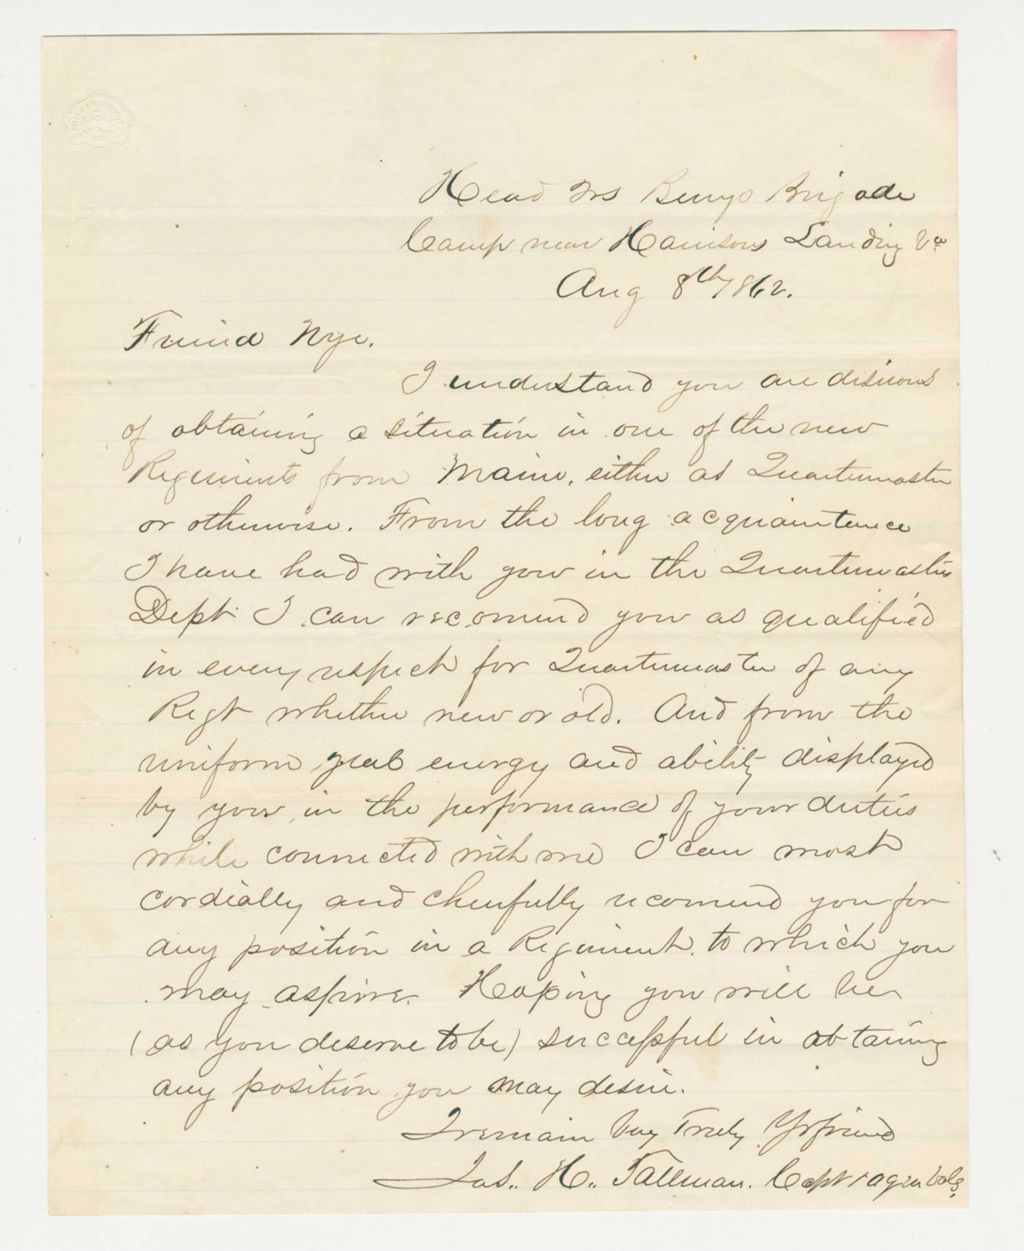 Head Qrs Berrys Brigade
Camp near Harrisons Landing Va
Aug 8th 1862.
Friend Nye.
I understand you are desirous
of obtaining a situation in one of the new
Regiments from Maine, either as Quartermaster
or otherwise. From the long acquaintence
I have had with you in the Quartermasters
Dept. I can recomend you as qualified
in every respect for Quartermaster of any
Regt whether new or old. And from the
uniform zeal energy and ability displayed
by you in the performance of your duties
while connected with me I can most
cordially and cheerfully recomend you for
any position in a Regiment, to which you
may aspire. Hoping you will be
(as you deserve to be) successful in obtaining
any position you may desire.
I remain Very Truly Yr friend
Jas. H. Tallman. Capt & aqm Vols.